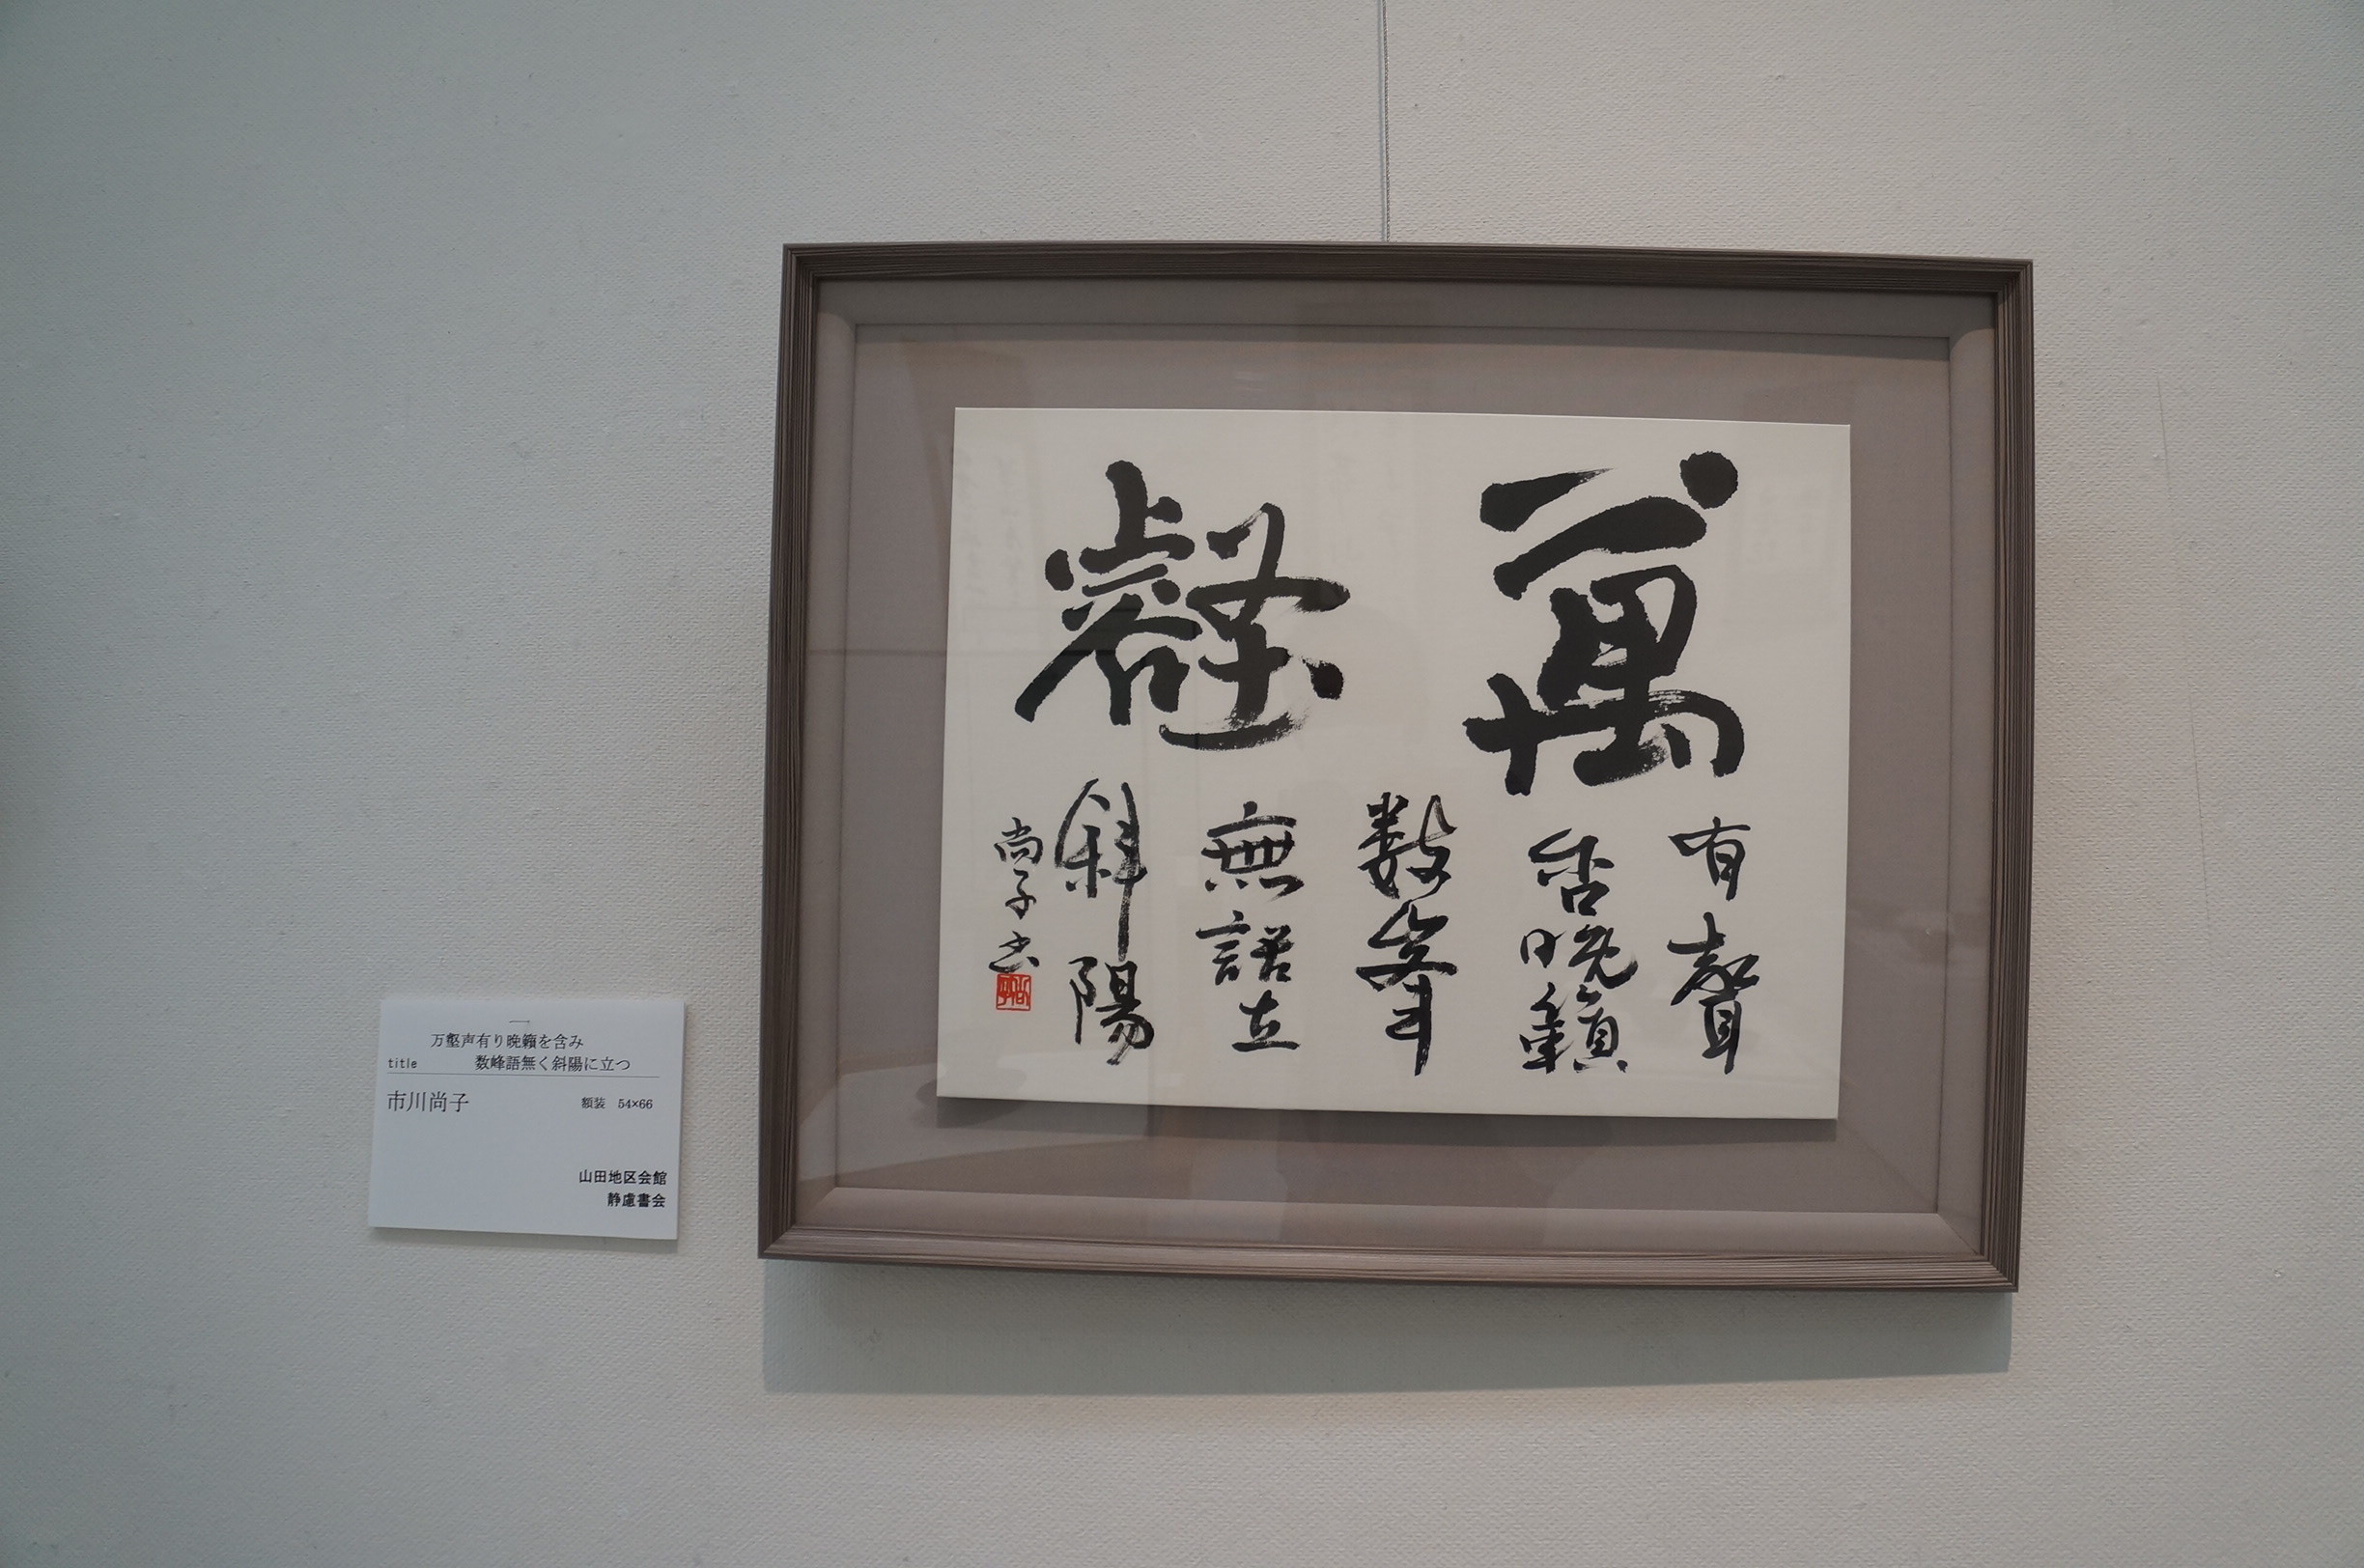 萬壑
有聲
含晩籟
数峯
無語立
斜陽
尚子書
万壑声有り晩籟を含み
title 数峰語無く斜陽に立つ
市川尚子 額装 54×66
山田地区会館
静慮書会